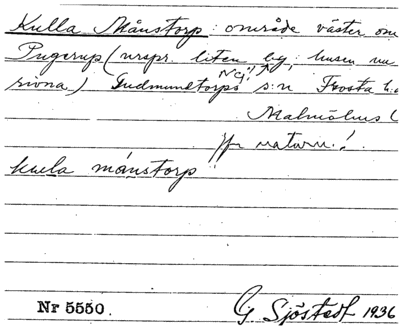 Kulla Månstorp: område väster om
Pugerup (urspr. liten by, husen nu
rivna) Gudmuntorps s:n Frosta h.d
Malmöhus l
kula månstorp
Nr 5550.
G Sjöstedt 1936